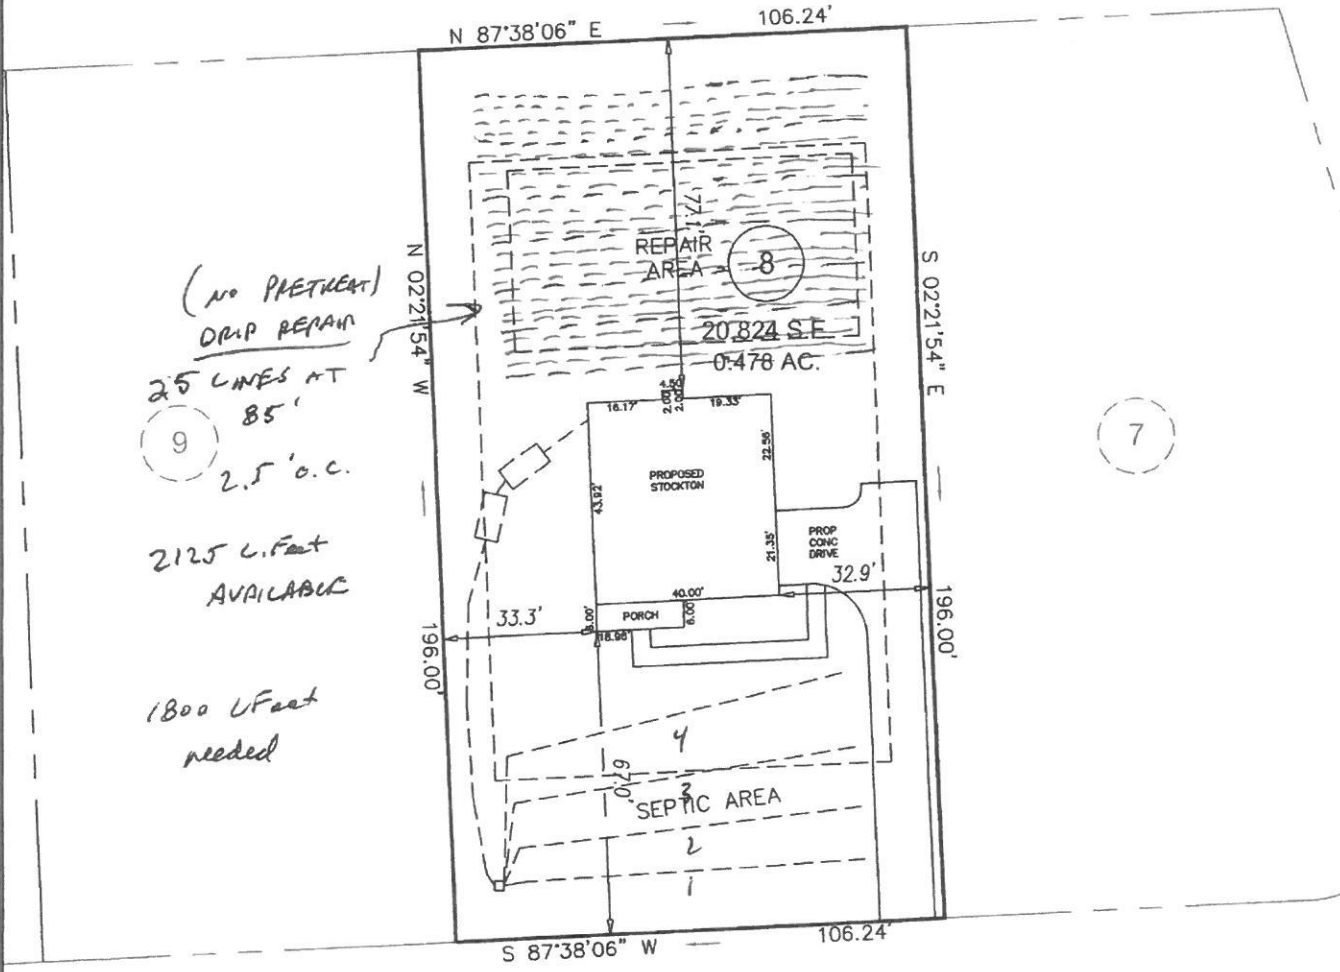 N 87°38'06" E
106.24'
77.1'
REPAIR
AREA
8
20,824 S.F.
0.478 AC.
N 02°21'54" W
S 02°21'54" E
(NO PRETREAT)
DRIP REPAIR
25 LINES AT
85'
9
2.5' O.C.
2125 L.Feet
AVAILABLE
1800 LFeet
needed
7
4.50'
2.00'
2.00'
16.17'
19.33'
PROPOSED
STOCKTON
22.56'
43.92'
21.35'
PROP
CONC
DRIVE
32.9'
40.00'
PORCH
6.00'
18.96'
33.3'
196.00'
196.00'
4
67.0'
3
SEPTIC AREA
2
1
S 87°38'06" W
106.24'